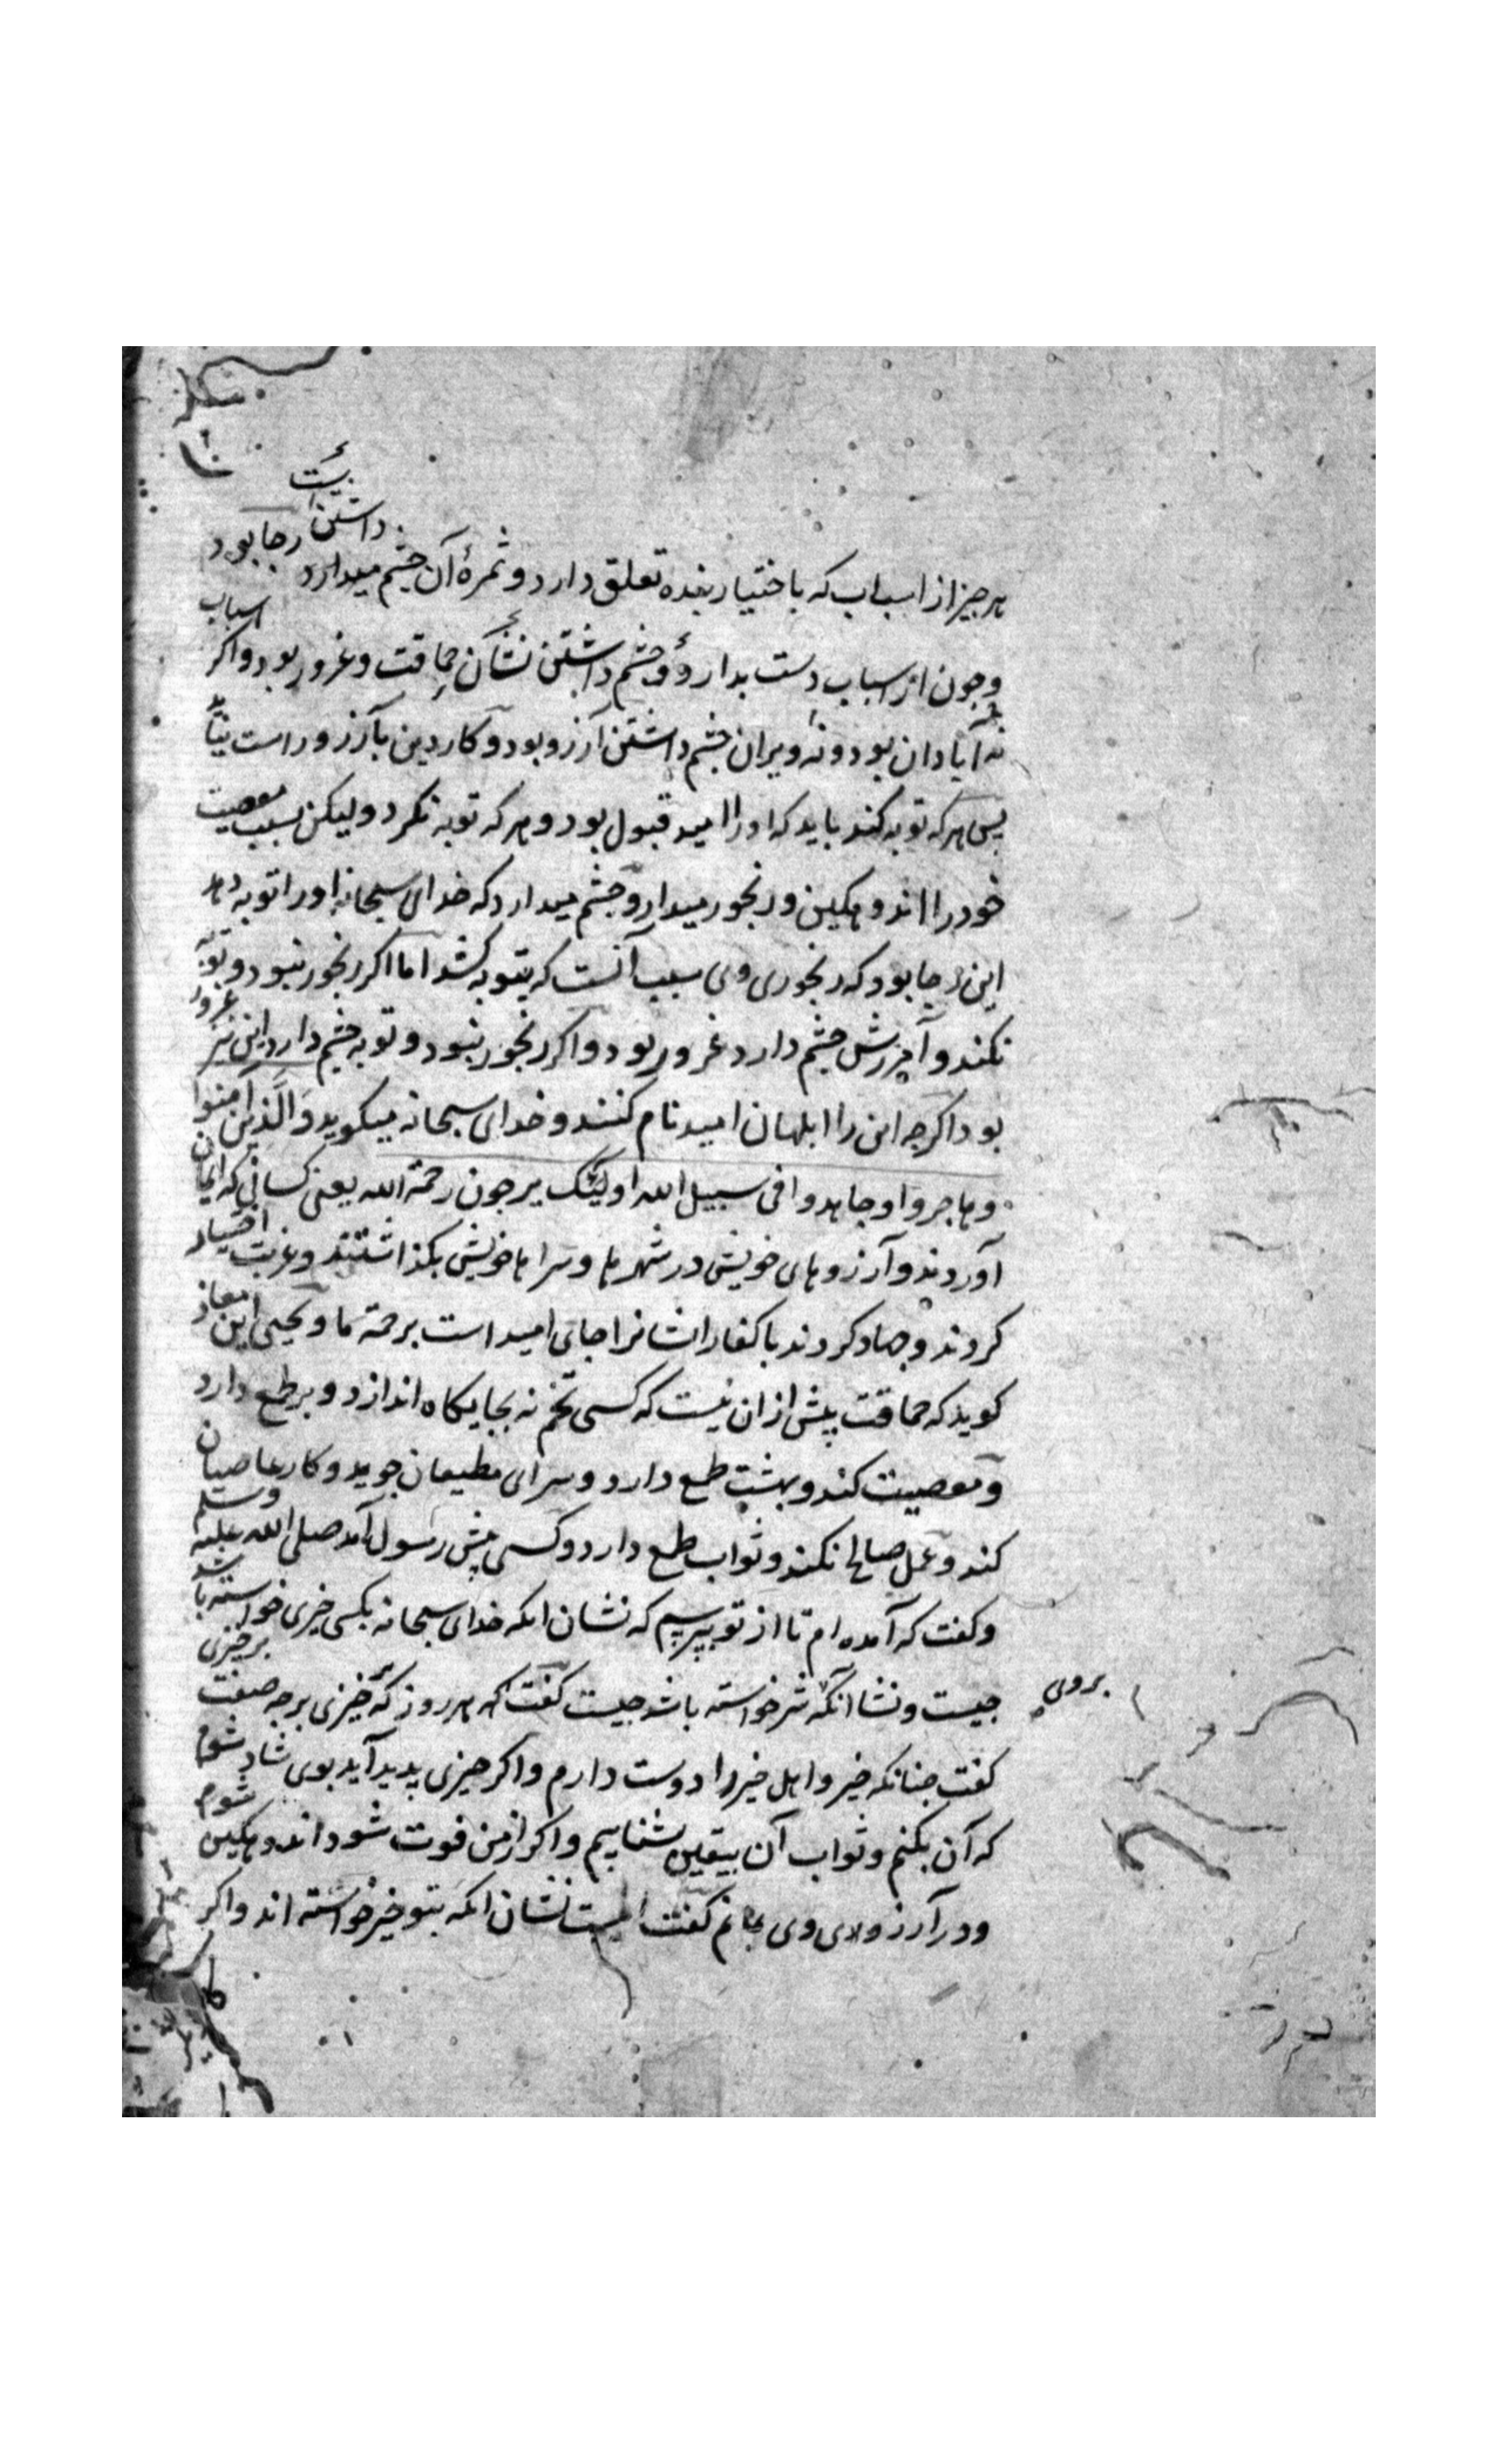 هر چیز از اسباب که باختیار بنده تعلق دارد و ثمرهٔ آن چشم میدارد داشتن رجا بود
و چون از اسباب دست بدارد و چشم داشتن نشان حماقت و غرور بود و اکر اسباب
نه آبادان بود و نه ویران چشم داشتن آرزو بود و کار دین بآرزو راست نیاید
پس هر که توبه کند باید که او را امید قبول بود و هر که توبه نکرد ولیکن بسبب معصیت
خود را اندوهکین و رنجور میدارد و چشم میدارد که خدای سبحانه او را توبه دهد
این رجا بود که رنجوری وی سبب آنست که بتوبه کشد اما اکر رنجور نبود و توبه
نکند و آمرزش چشم دارد غرور بود و اکر رنجور نبود و توبه چشم دارد این نیز غرور
بود اکرچه این را ابلهان امید نام کنند و خدای سبحانه میکوید وَالَّذین امنوا
و هاجروا و جاهدوا فی سبیل الله اولئک یرجون رحمة الله یعنی کسانی که ایمان
آوردند و آرزوهای خویش در شهرها و سراها خویش بکذاشتند و غربت اختیار
کردند و جهاد کردند با کفار ایشانرا جای امید است برحمة ما و یحیی ابن معاذ
کوید که حماقت پیش ازان نیست که کسی تخم نه بجایکاه اندازد و بر طمع دارد
و معصیت کند و بهشت طمع دارد و سرای مطیعان جوید و کار عاصیان
کند و عمل صالح نکند و ثواب طمع دارد و کسی پیش رسول آمد صلی الله علیه وسلم
و کفت که آمده ام تا از تو بپرسیم که نشان انکه خدای سبحانه بکسی خیری خواسته باشد
چیست و نشان آنکه شر خواسته باشد چیست کفت که هر روز که خیزی بر چه صفت برخیزی
بروی
کفت چنانکه خیر و اهل خیر را دوست دارم و اکر چیزی پدید آید بوی شاد شوم
که آن بکنم و ثواب آن بیقین شناسیم و اکر از من فوت شود اندوهکین شوم
و در آرزوی وی بمانم کفت اینست نشان انکه بتو خیر خواسته اند و اکر